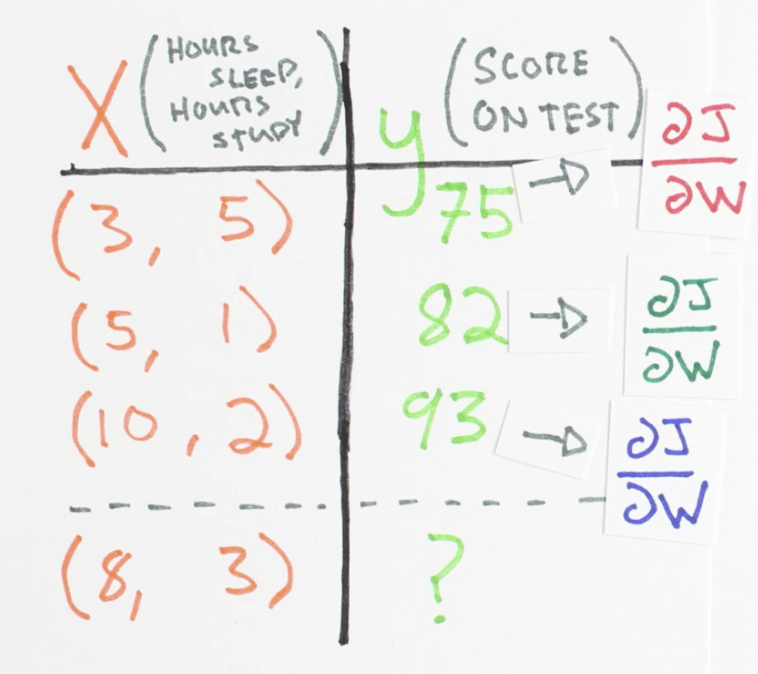 X (HOURS SLEEP, HOURS STUDY) y (SCORE ON TEST)
(3, 5) 75 → ∂J/∂W
(5, 1) 82 → ∂J/∂W
(10, 2) 93 → ∂J/∂W
(8, 3) ?